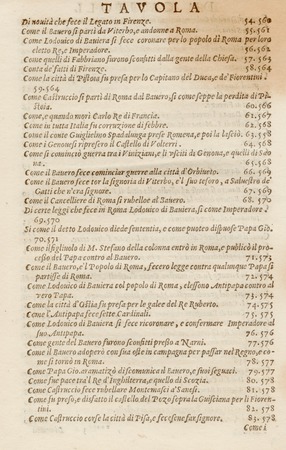 TAVOLA
Di novità che fece il Legato in Firenze. 54. 560
Come il Bavero si partì da Viterbo, e andonne a Roma. 55. 561
Come Lodovico di Baviera si fece coronare per lo popolo di Roma per loro
eletto Re, e Imperadore. 56. 562
Come quelli di Fabbriano furono sconfitti dalla gente della Chiesa. 57. 563
Conta de' fatti di Firenze. 58. 563
Come la città di Pistoia fu presa per lo Capitano del Duca, e de Fiorentini
59. 564
Come Castruccio si partì di Roma dal Bavero, sì come seppe la perdita di Pi-
stoia. 60. 566
Come, e quando morì Carlo Re di Francia. 61. 567
Come in tutta Italia fu corruzione di febbre. 62. 568
Come il conte Guiglielmo Spadalunga prese Romena, e poi la lasciò. 63. 568
Come i Genovesi ripresero il Castello di Volterri. 64. 568
Come si cominciò guerra tra i Viniziani, e li usciti di Genova, e quelli di Sa-
65. 568
Come il Bavero fece cominciar guerra alla città d'Orbivieto. 66. 569
Come il Bavero fece tor la signoria di Viterbo, e'l suo tesoro, a Salvestro de
Gatti che v'era signore. 67. 569
Come il Cancelliere di Roma si rubellò al Bavero. 68. 570
Di certe leggi che fece in Roma Lodovico di Baviera, sì come Imperadore.
69. 570
Sì come il detto Lodovico diede sentenzia, e come puoteo dispuose Papa Gio.
70. 571
Come il figliuolo di M. Stefano della colonna entrò in Roma, e publicò il pro-
cesso del Papa contro al Bavero. 71. 573
Come il Bavero, e'l Popolo di Roma, fecero legge contra qualunque Papa si
partisse di Roma. 72. 574
Come Lodovico di Baviera col popolo di Roma, elessono Antipapa contro al
vero Papa. 73. 574
Come la città d'Ostia fu presa per le galee del Re Ruberto. 74. 575
Come l'Antipapa fece sette Cardinali. 75. 575
Come Lodovico di Baviera si fece ricoronare, e confermare Imperadore al
suo Antipapa. 76. 576
Come gente del Bavero furono sconfitti presso a Narni. 77. 576
Come il Bavero adoperò con sua oste in campagna per passar nel Regno, e co-
me si tornò in Roma. 78. 577
Come Papa Gio. anatematizò di scomunica il Bavero, e suoi seguaci. 79. 577
Come fue pace tra'l Re d'Inghilterra, e quello di Scozia. 80. 578
Come Castruccio fece rubellare Montemasci d'Sanesi. 81. 578
Come fu preso, e disfatto il castello del Pozo sopra la Guisciana per li Fioren-
tini. 82. 578
Come Castruccio corse la città di Pisa, e feccesene far signore. 83. 578
Come i